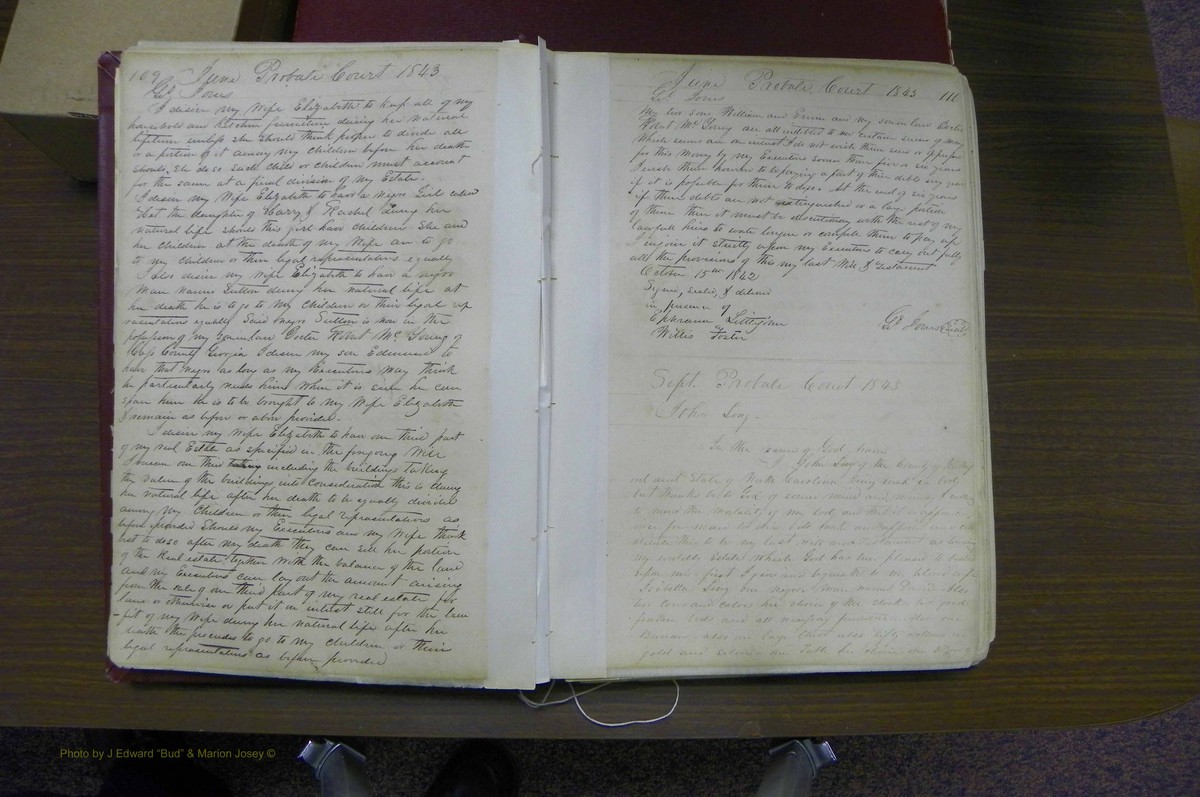 109 June Probate Court 1843
Go Jones
I desire my Wife Elizabeth to keep all of my
household and Kitchen furniture during her natural
lifetime unless she should think proper to divide all
or a portion of it among my children before her death
should she do so such child or children must account
for the same at a final division of my Estate.
I desire my Wife Elizabeth to have a Negro Girl called
the daughter of Harry & Rachel During her
natural life should this girl have children She and
her children at the death of my Wife are to go
to my children or their legal representatives equally
I also desire my Wife Elizabeth to have a negro
man named Sutton during her natural life at
her death he is to go to my Children or their legal rep
resentatives equally Said Negro Sutton is now in the
possession of my son in law Doctor Robert Mc Young of
Cass County Georgia I desire my son
have that Negro as long as my Executors may think
he particularly needs him when it is sure he can
spare him he is to be brought to my Wife Elizabeth
& remain as before or above provided.
I desire my Wife Elizabeth to have one third part
of my real Estate as specified in the forgoing Will
I mean one third including the buildings taking
the value of the buildings into consideration this is during
her natural life after her death to be equally divided
among my Children or their legal representatives as
before provided Should my Executors and my Wife think
best to do so after my death they can sell her portion
of the Real estate together with the balance of the land
and my Executors can lay out the amount arising
from the sale of one third part of my real estate for
land or otherwise or put it on interest still for the bene
-fit of my Wife during her natural life after her
death the proceeds to go to my children or their
legal representatives as before provided
June Probate Court 1843 111
Go Jones
My two sons William and and my son in law Doctor
Robert Mc Young are all indebted to me certain sums of money
which sums are on interest I do not wish them sued or oppressed
for this Money by my Executors sooner than five or six years
I wish them however to be paying a part of their debts every year
if it is possible for them to do so. At the end of six years
if their debts are not extinguished or a large portion
of them then it must be discretionary with the rest of my
lawful heirs to wait longer or compel them to pay up
I enjoin it strictly upon my Executors to carry out fully
all the provisions of this my last Will & Testament
October 15th 1842
Signed, sealed, & delivered
in presence of
Ephraim Littlejohn
Willis Foster
Go Jones (Seal)
Sept. Probate Court 1843
John Long
In the name of God Amen
I John Long of the County of
and State of North Carolina being weak in body
but thanks be to God of sound mind and
to mind the mortality of my body and
once for
this to be my last will and Testament as
my worldly Estate which God has been pleased to
upon me first I give and bequeath to my beloved wife
Isabella Long one negro man named David also
two cows and calves her choice of the stock two good
feather beds and all necessary furniture also one
Bureau also one large Chest also fifty dollars in
gold and silver one Table
Photo by J Edward "Bud" & Marion Josey ©